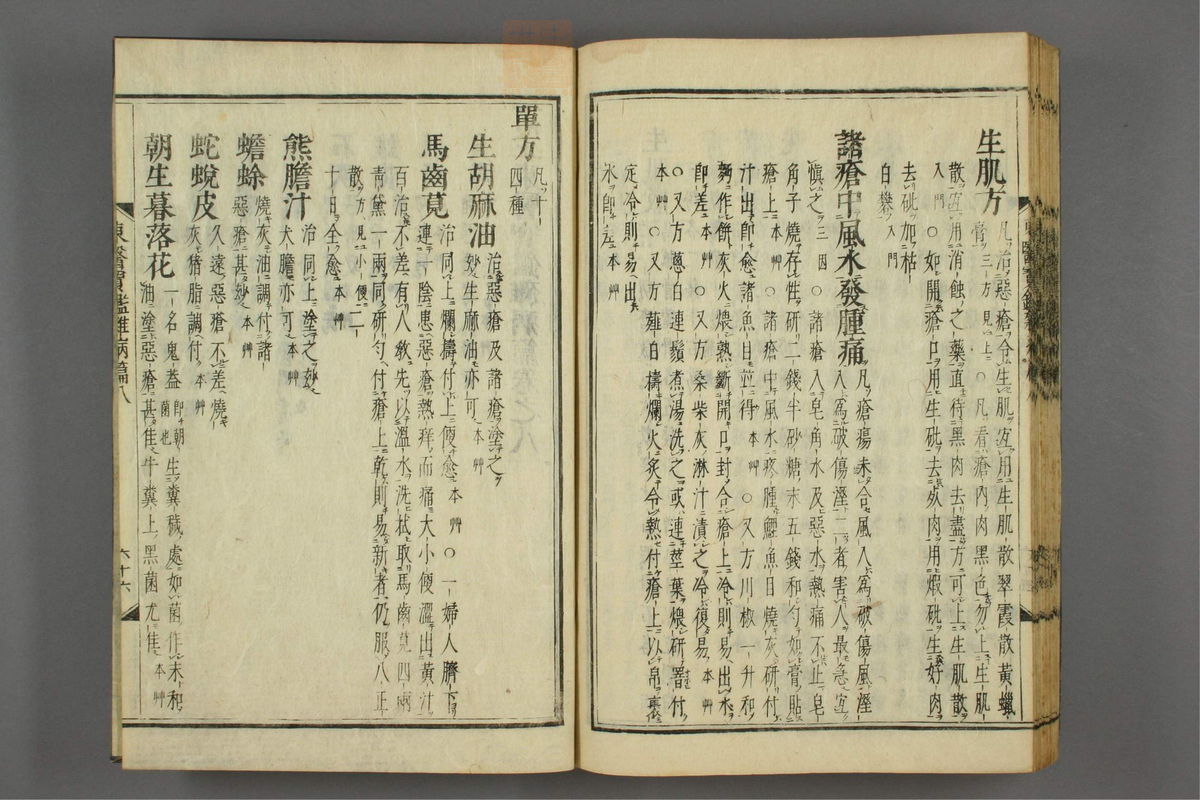 生肌方 凡治惡瘡令生肌宜用生肌散翠霞散黃蠟
膏三方見上○凡看瘡內肉黑色勿上生肌
散宜用消蝕之藥直待黑肉去盡方可上生肌散
入門○如開瘡口用生砒去死肉用煆砒生好肉
去砒加枯
白礬入門
諸瘡中風水發腫痛 凡瘡瘍未合風入爲破傷風溼
入爲破傷溼二者害人最急宜
愼之三因○諸瘡入皂角水及惡水熱痛不止皂
角子燒存性硏二錢半砂糖末五錢和勻如膏貼
瘡上本艸○諸瘡中風水疼腫鯉魚目燒灰硏付
汁出卽愈諸魚目竝得本艸○又方川椒一升和
麪作餅灰火煨熟斷開口封合瘡上冷則易出水
卽差本艸○又方桑柴灰淋汁漬之冷復易本艸
○又方蔥白連鬚煮湯洗之或連莖葉煨硏署付
本艸○又方薤白擣爛火炙令熱付瘡上以帛裹
定冷則易出
水卽差本艸
單方 凡十
四種
生胡麻油 治惡瘡及諸瘡塗之
妙生麻油亦可本艸
馬齒莧 治同上爛擣付上便愈本艸○一婦人臍下
連二陰患惡瘡熱痒而痛大小便澀出黃汁
百治不差有人敎先以溫水洗拭取馬齒莧四兩
靑黛一兩同硏勻付瘡上乾則易新者仍服八正
散方見小便二
十日全愈本艸
熊膽汁 治同上塗之妙
犬膽亦可本艸
蟾蜍 燒灰油調付諸
惡瘡甚妙本艸
蛇蛻皮 久遠惡瘡不差燒
灰猪脂調付本艸
朝生暮落花 一名鬼蓋卽朝生糞穢處如菌作末和
菌也
油塗惡瘡甚佳牛糞上黑菌尤佳本艸
東醫寶鑑雜病篇八
六十六